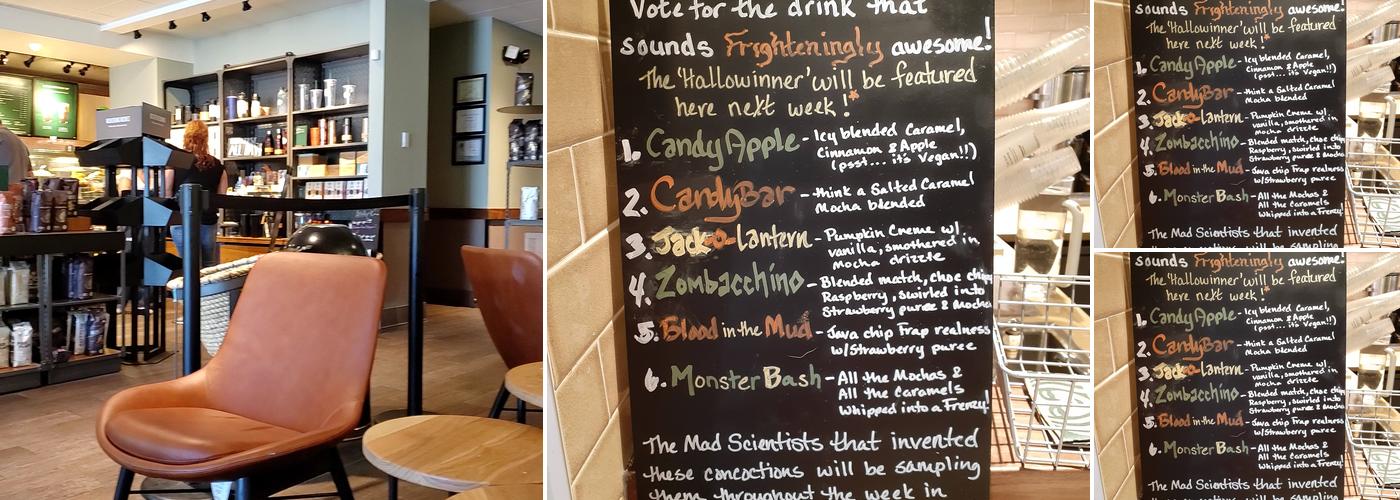 Vote for the drink that
sounds Frighteningly awesome!
The 'Hallowinner' will be featured
here next week!*
1. Candy Apple - Icy blended Caramel,
Cinnamon & Apple
(psst... it's Vegan!!)
2. CandyBar - think a Salted Caramel
Mocha blended
3. Jack-o-Lantern - Pumpkin Creme w/
vanilla, smothered in
mocha drizzle
4. Zombacchino - Blended match, choc chips
Raspberry, swirled into
Strawberry puree & Mocha
5. Blood in the Mud - Java chip Frap realness
w/Strawberry puree
6. Monster Bash - All the Mochas &
All the Caramels
Whipped into a Frenzy!
The Mad Scientists that invented
these concoctions will be sampling
them throughout the week in
sounds Frighteningly awesome!
The 'Hallowinner' will be featured
here next week!*
1. Candy Apple - Icy blended Caramel,
Cinnamon & Apple
(psst... it's Vegan!!)
2. CandyBar - think a Salted Caramel
Mocha blended
3. Jack-o-Lantern - Pumpkin Creme w/
vanilla, smothered in
mocha drizzle
4. Zombacchino - Blended match, choc chips
Raspberry, swirled into
Strawberry puree & Mocha
5. Blood in the Mud - Java chip Frap realness
w/Strawberry puree
6. Monster Bash - All the Mochas &
All the Caramels
Whipped into a Frenzy!
The Mad Scientists that invented
these concoctions will be sampling
sounds Frighteningly awesome!
The 'Hallowinner' will be featured
here next week!*
1. Candy Apple - Icy blended Caramel,
Cinnamon & Apple
(psst... it's Vegan!!)
2. CandyBar - think a Salted Caramel
Mocha blended
3. Jack-o-Lantern - Pumpkin Creme w/
vanilla, smothered in
mocha drizzle
4. Zombacchino - Blended match, choc chips
Raspberry, swirled into
Strawberry puree & Mocha
5. Blood in the Mud - Java chip Frap realness
w/Strawberry puree
6. Monster Bash - All the Mochas &
All the Caramels
Whipped into a Frenzy!
The Mad Scientists that invented